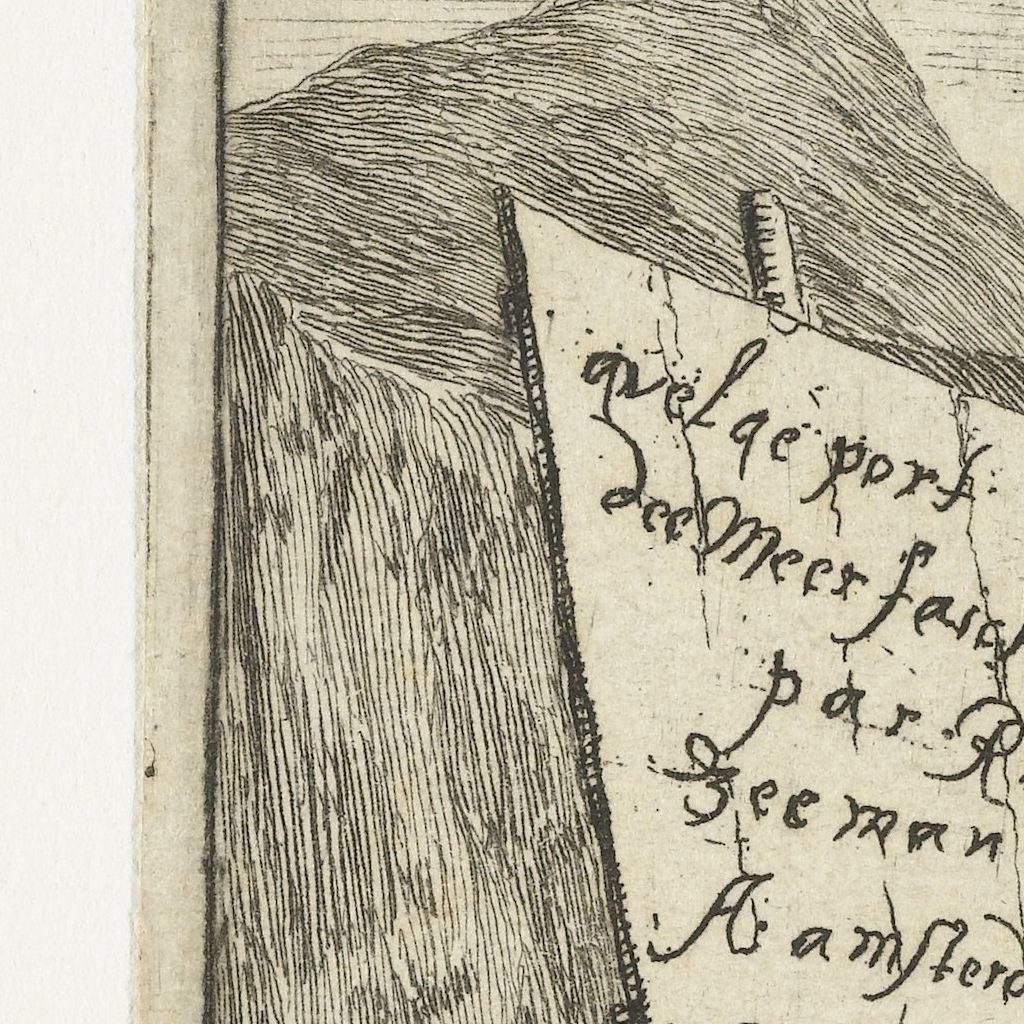 quelqe pors
dee Meer fasch
par R
Zeeman
A amsterd